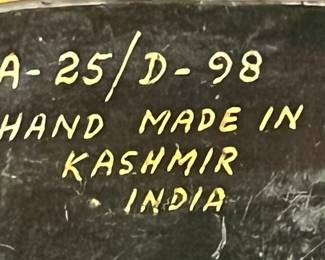 A-25/D-98
HAND MADE IN
KASHMIR
INDIA